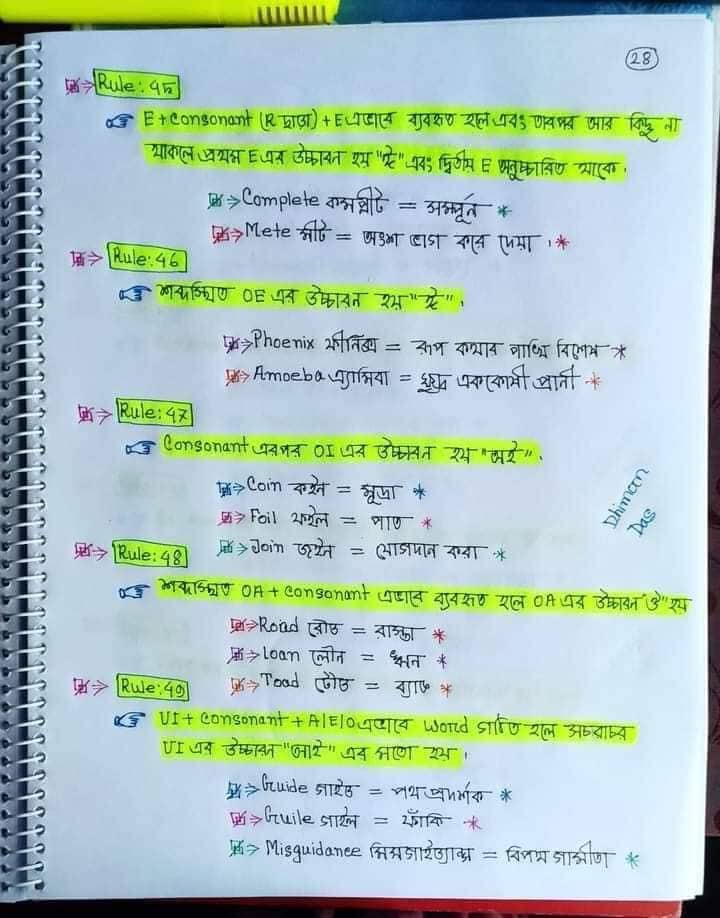 28
Rule: 45
E + Consonant (R ছাড়া) + E এভাবে ব্যবহৃত হলে এবং তারপর আর কিছু না
থাকলে প্রথম E এর উচ্চারন হয় "ঈ" এবং দ্বিতীয় E অনুচ্চারিত থাকে।
⇒ Complete কমপ্লীট = সমপূর্ন *
⇒ Mete মীট = অংশ ভাগ করে দেয়া । *
⇒ Rule: 46
শব্দস্থিত OE এর উচ্চারন হয় "ঈ"।
⇒ Phoenix ফীনিক্স = রূপ কথার পাখি বিশেষ *
⇒ Amoeba এ্যামিবা = ক্ষুদ্র এককোষী প্রানী *
⇒ Rule: 47
Consonant এরপর OI এর উচ্চারন হয় "অই"।
⇒ Coin কইন = মুদ্রা *
⇒ Foil ফইল = পাত *
Dhiman Das
⇒ Rule: 48 ⇒ Join জইন = যোগদান করা *
শব্দস্থিত OA + consonant এভাবে ব্যবহৃত হলে OA এর উচ্চারন "ও" হয়
⇒ Road রোড = রাস্তা *
⇒ Loan লৌন = ঋন *
⇒ Rule: 49 ⇒ Toad টৌড = ব্যাঙ *
UI + Consonant + A|E|O এভাবে Word গঠিত হলে সচরাচর
UI এর উচ্চারন "আই" এর মতো হয় ।
⇒ Guide গাইড = পথ প্রদর্শক *
⇒ Guile গাইল = ফাঁকি *
⇒ Misguidance মিসগাইড্যান্স = বিপথ গামীতা *